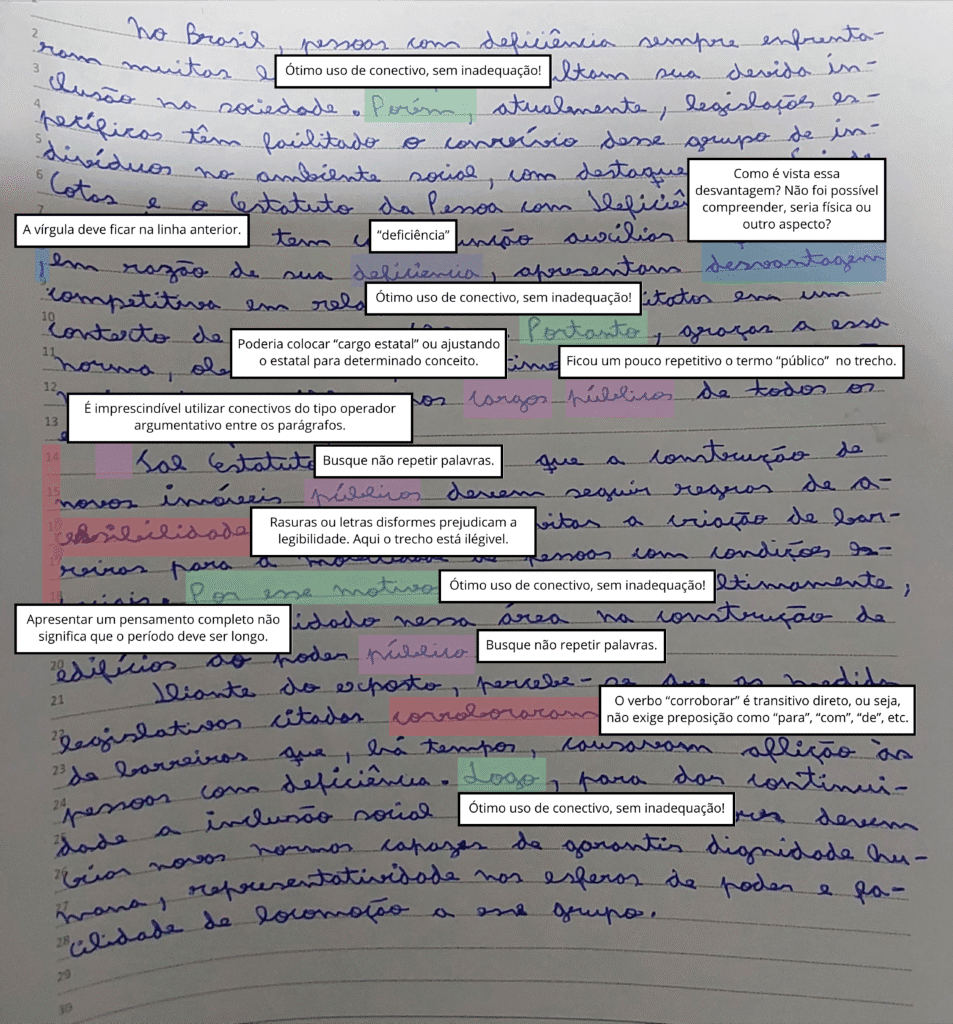 2 No Brasil, pessoas com deficiência sempre enfrenta-
3 ram muitas
Ótimo uso de conectivo, sem inadequação!
ultam sua devida in-
4 clusão na sociedade. Porém, atualmente, legislações es-
5 pecíficas têm facilitado o convívio desse grupo de in-
6 divíduos no ambiente social, com destaque
Como é vista essa desvantagem? Não foi possível compreender, seria física ou outro aspecto?
7 Cotas e o Estatuto da Pessoa com Defici
A vírgula deve ficar na linha anterior.
tem
"deficiência"
unção auxiliar
, em razão de sua deficiencia, apresentam desvantagem
competitiva em rela
Ótimo uso de conectivo, sem inadequação!
itados em um
10 contexto de
Portanto, graças a essa
Poderia colocar "cargo estatal" ou ajustando o estatal para determinado conceito.
Ficou um pouco repetitivo o termo "público" no trecho.
11 norma,
12 nos cargos públicos de todos os
É imprescindível utilizar conectivos do tipo operador argumentativo entre os parágrafos.
13
14 Tal Estatuto
Busque não repetir palavras.
que a construção de
15 novos imóveis públicos devem seguir regras de a-
16
Rasuras ou letras disformes prejudicam a legibilidade. Aqui o trecho está ilégivel.
a criação de bar-
17 reiras para a
pessoas com condições es-
18 Por esse motivo
Ótimo uso de conectivo, sem inadequação!
ltimamente,
Apresentar um pensamento completo não significa que o período deve ser longo.
idado nessa área na construção de
20 edifícios do poder público
Busque não repetir palavras.
21 Diante do exposto, percebe-se que as medida
22 legislativas citadas corroboraram
O verbo "corroborar" é transitivo direto, ou seja, não exige preposição como "para", "com", "de", etc.
23 de barreiras que, há tempos, causavam aflição às
24 pessoas com deficiência. Logo, para dar continui-
Ótimo uso de conectivo, sem inadequação!
25 dade a inclusão social
ores devem
26 criar novas normas capazes de garantir dignidade hu-
27 mana, representatividade nas esferas de poder e fa-
28 cilidade de locomoção a esse grupo.
29
30